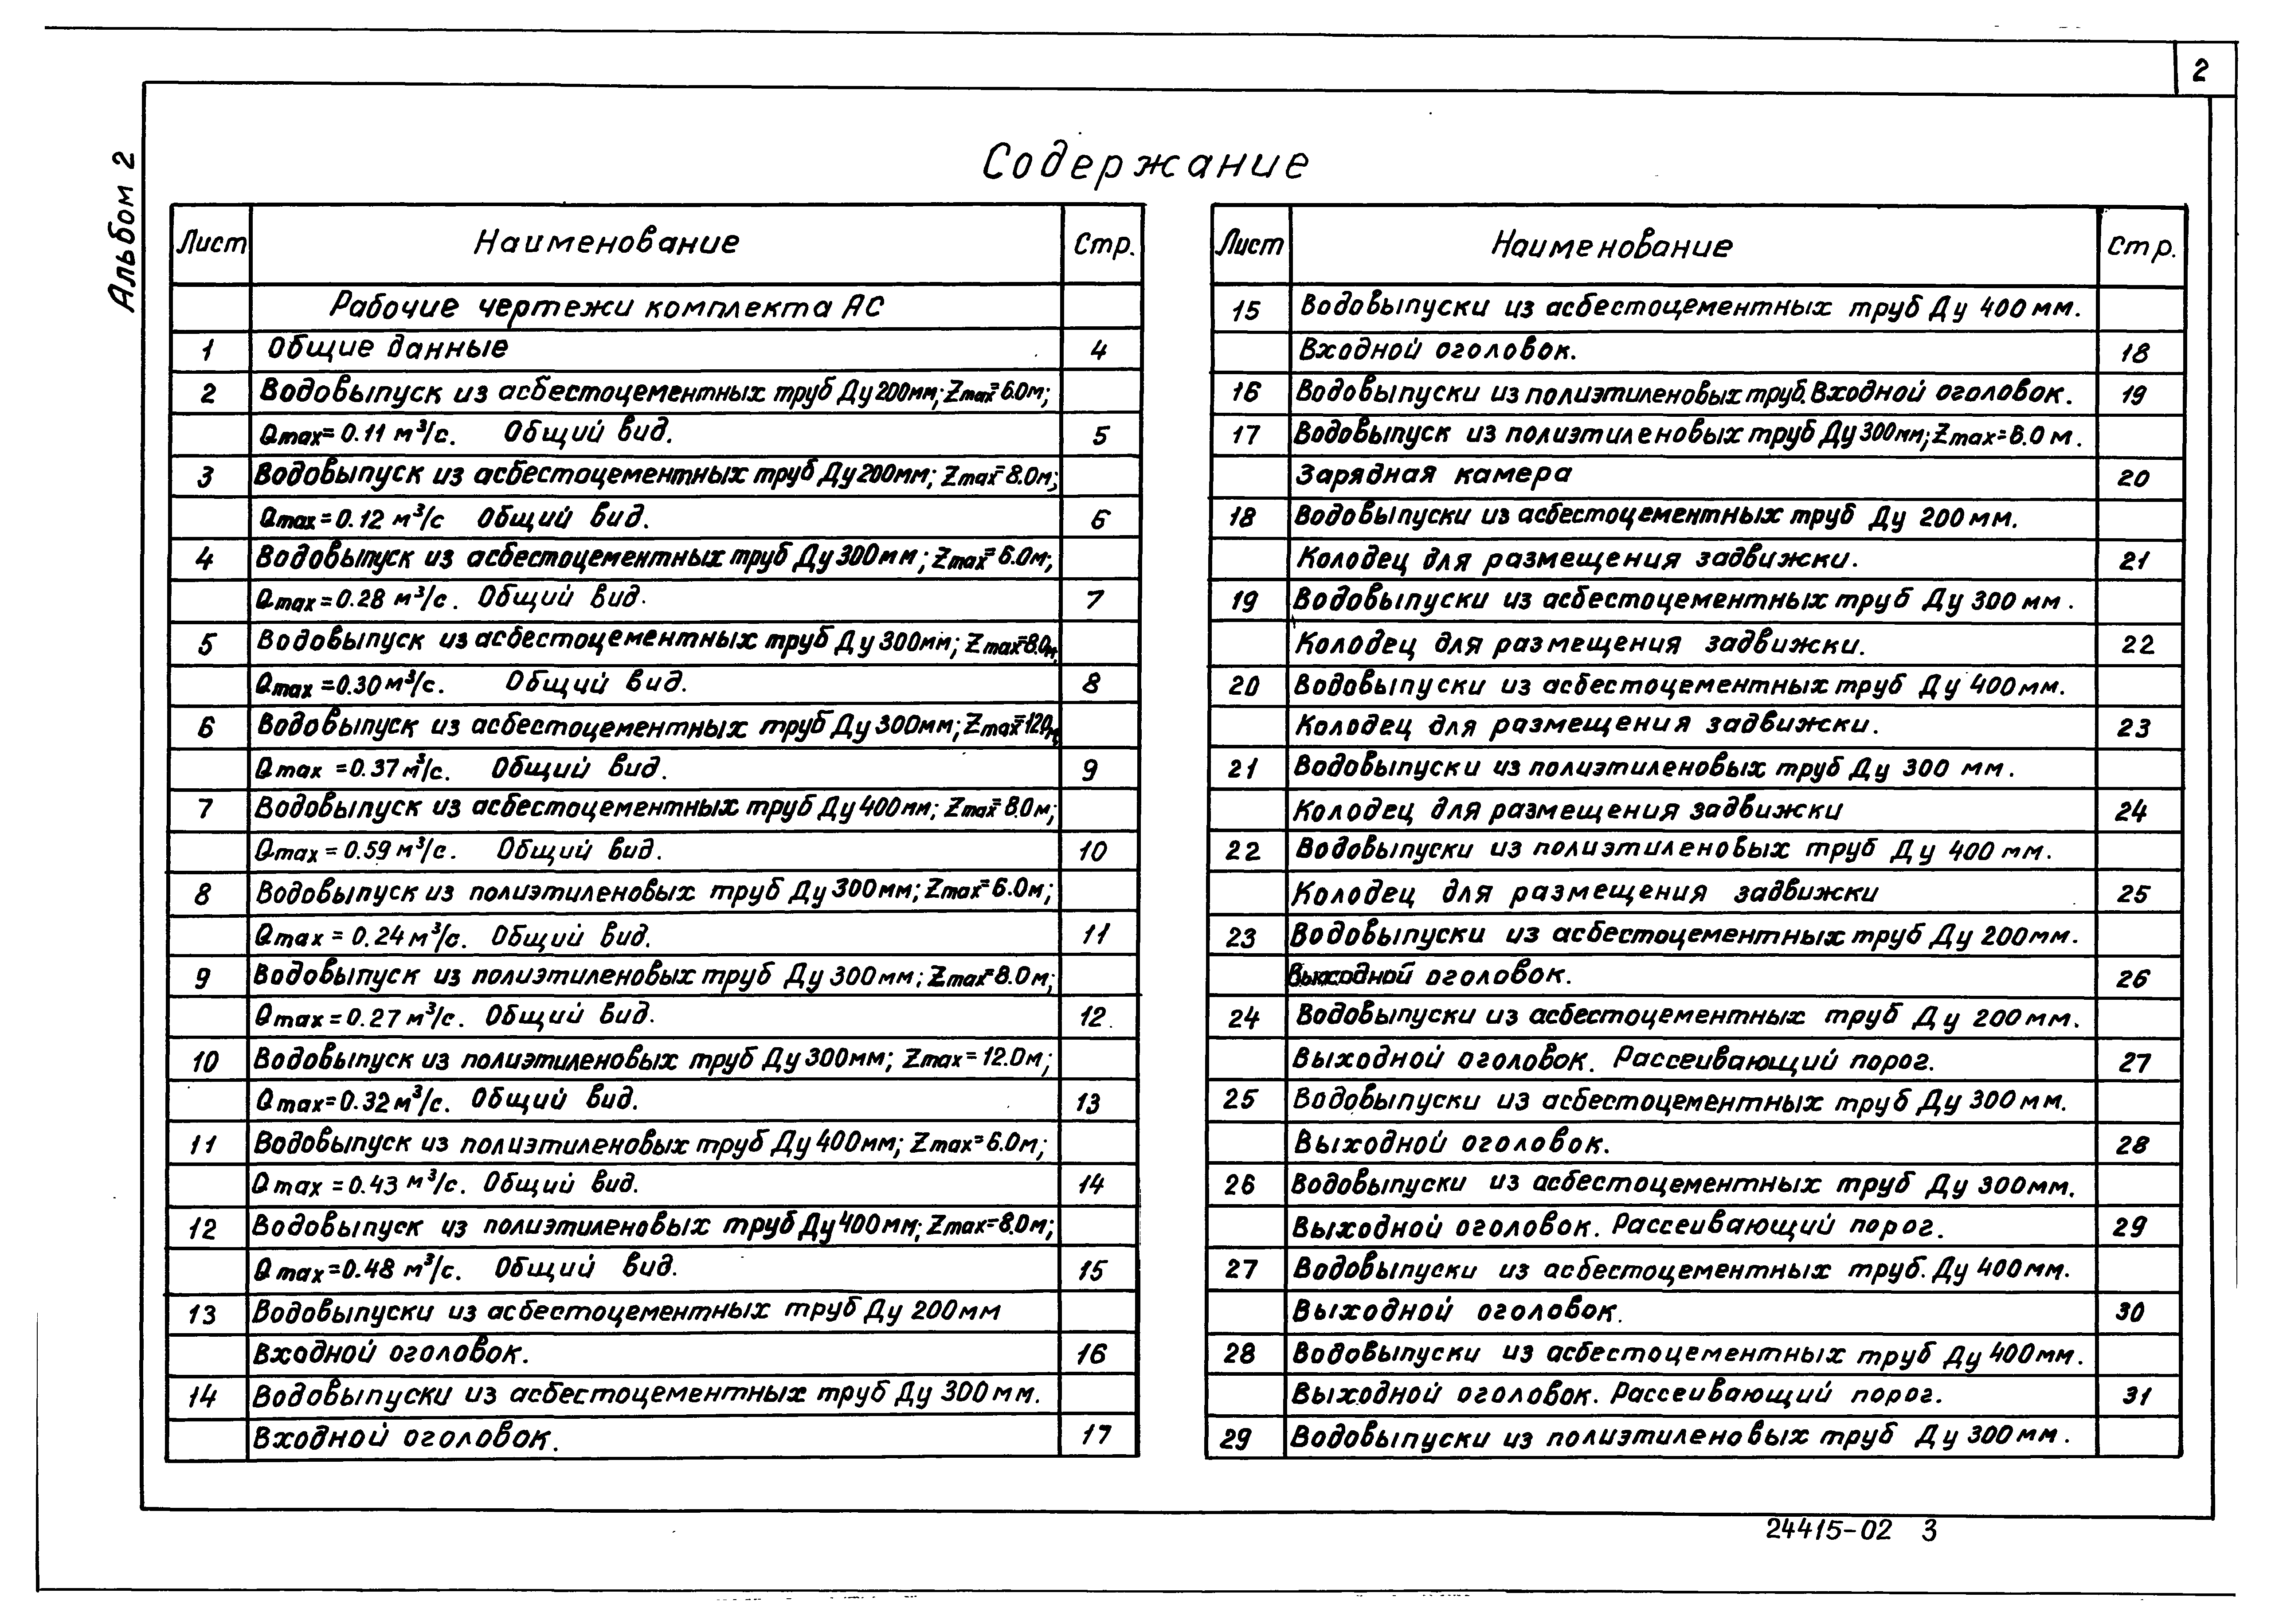 2
Альбом 2
Содержание
Лист Наименование Стр.
Рабочие чертежи комплекта АС
1 Общие данные 4
2 Водовыпуск из асбестоцементных труб Ду 200мм; Zmax=6.0м;
Qmax=0.11 м³/с. Общий вид. 5
3 Водовыпуск из асбестоцементных труб Ду 200мм; Zmax=8.0м;
Qmax=0.12 м³/с Общий вид. 6
4 Водовыпуск из асбестоцементных труб Ду 300мм; Zmax=6.0м;
Qmax=0.28 м³/с. Общий вид. 7
5 Водовыпуск из асбестоцементных труб Ду 300мм; Zmax=8.0м;
Qmax=0.30 м³/с. Общий вид. 8
6 Водовыпуск из асбестоцементных труб Ду 300мм; Zmax=12.0м;
Qmax=0.37 м³/с. Общий вид. 9
7 Водовыпуск из асбестоцементных труб Ду 400мм; Zmax=8.0м;
Qmax=0.59 м³/с. Общий вид. 10
8 Водовыпуск из полиэтиленовых труб Ду 300мм; Zmax=6.0м;
Qmax=0.24 м³/с. Общий вид. 11
9 Водовыпуск из полиэтиленовых труб Ду 300мм; Zmax=8.0м;
Qmax=0.27 м³/с. Общий вид. 12
10 Водовыпуск из полиэтиленовых труб Ду 300мм; Zmax=12.0м;
Qmax=0.32 м³/с. Общий вид. 13
11 Водовыпуск из полиэтиленовых труб Ду 400мм; Zmax=6.0м;
Qmax=0.43 м³/с. Общий вид. 14
12 Водовыпуск из полиэтиленовых труб Ду 400мм; Zmax=8.0м;
Qmax=0.48 м³/с. Общий вид. 15
13 Водовыпуски из асбестоцементных труб Ду 200мм
Входной оголовок. 16
14 Водовыпуски из асбестоцементных труб Ду 300мм.
Входной оголовок. 17
Лист Наименование Стр.
15 Водовыпуски из асбестоцементных труб Ду 400мм.
Входной оголовок. 18
16 Водовыпуски из полиэтиленовых труб. Входной оголовок. 19
17 Водовыпуск из полиэтиленовых труб Ду 300мм; Zmax=6.0м.
Зарядная камера 20
18 Водовыпуски из асбестоцементных труб Ду 200мм.
Колодец для размещения задвижки. 21
19 Водовыпуски из асбестоцементных труб Ду 300мм.
Колодец для размещения задвижки. 22
20 Водовыпуски из асбестоцементных труб Ду 400мм.
Колодец для размещения задвижки. 23
21 Водовыпуски из полиэтиленовых труб Ду 300 мм.
Колодец для размещения задвижки 24
22 Водовыпуски из полиэтиленовых труб Ду 400 мм.
Колодец для размещения задвижки 25
23 Водовыпуски из асбестоцементных труб Ду 200мм.
Выходной оголовок. 26
24 Водовыпуски из асбестоцементных труб Ду 200мм.
Выходной оголовок. Рассеивающий порог. 27
25 Водовыпуски из асбестоцементных труб Ду 300мм.
Выходной оголовок. 28
26 Водовыпуски из асбестоцементных труб Ду 300мм.
Выходной оголовок. Рассеивающий порог. 29
27 Водовыпуски из асбестоцементных труб. Ду 400мм.
Выходной оголовок. 30
28 Водовыпуски из асбестоцементных труб Ду 400мм.
Выходной оголовок. Рассеивающий порог. 31
29 Водовыпуски из полиэтиленовых труб Ду 300мм.
24415-02 3